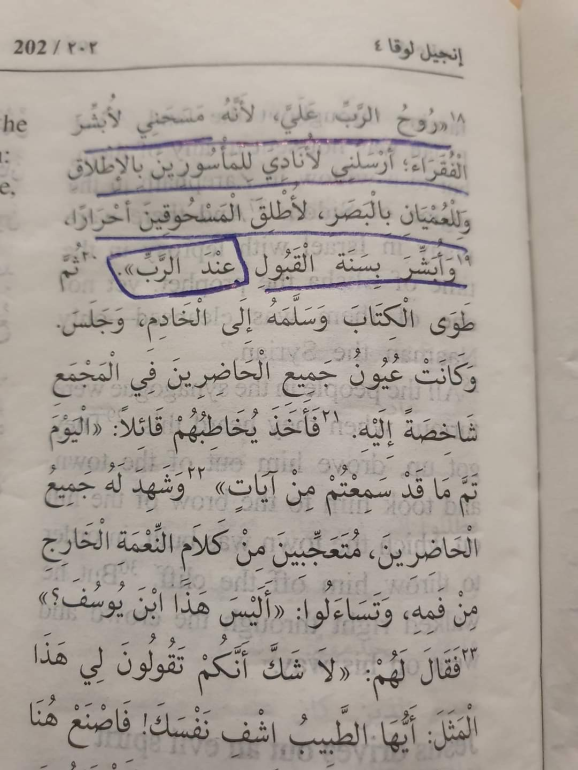 إنجيل لوقا ٤
202 / ٢٠٢
the
:
e.
١٨«رُوحُ الرَّبِّ عَلَيَّ، لأَنَّهُ مَسَحَنِي لأُبَشِّرَ
الْفُقَرَاءَ؛ أَرْسَلَنِي لأُنَادِيَ لِلْمَأْسُورِينَ بِالإِطْلاقِ
وَلِلْعُمْيَانِ بِالْبَصَرِ، لأُطْلِقَ الْمَسْحُوقِينَ أَحْرَارًا،
١٩وَأُبَشِّرَ بِسَنَةِ الْقَبُولِ عِنْدَ الرَّبِّ». ٢٠ثُمَّ
طَوَى الْكِتَابَ، وَسَلَّمَهُ إِلَى الْخَادِمِ، وَجَلَسَ.
وَكَانَتْ عُيُونُ جَمِيعِ الْحَاضِرِينَ فِي الْمَجْمَعِ
شَاخِصَةً إِلَيْهِ. ٢١فَأَخَذَ يُخَاطِبُهُمْ قَائِلاً: «الْيَوْمَ
تَمَّ مَا قَدْ سَمِعْتُمْ مِنْ آيَاتٍ» ٢٢وَشَهِدَ لَهُ جَمِيعُ
الْحَاضِرِينَ، مُتَعَجِّبِينَ مِنْ كَلاَمِ النِّعْمَةِ الْخَارِجِ
مِنْ فَمِهِ، وَتَسَاءَلُوا: «أَلَيْسَ هَذَا ابْنَ يُوسُفَ؟»
٢٣فَقَالَ لَهُمْ: «لاَ شَكَّ أَنَّكُمْ تَقُولُونَ لِي هَذَا
الْمَثَلَ: أَيُّهَا الطَّبِيبُ اشْفِ نَفْسَكَ! فَاصْنَعْ هُنَا